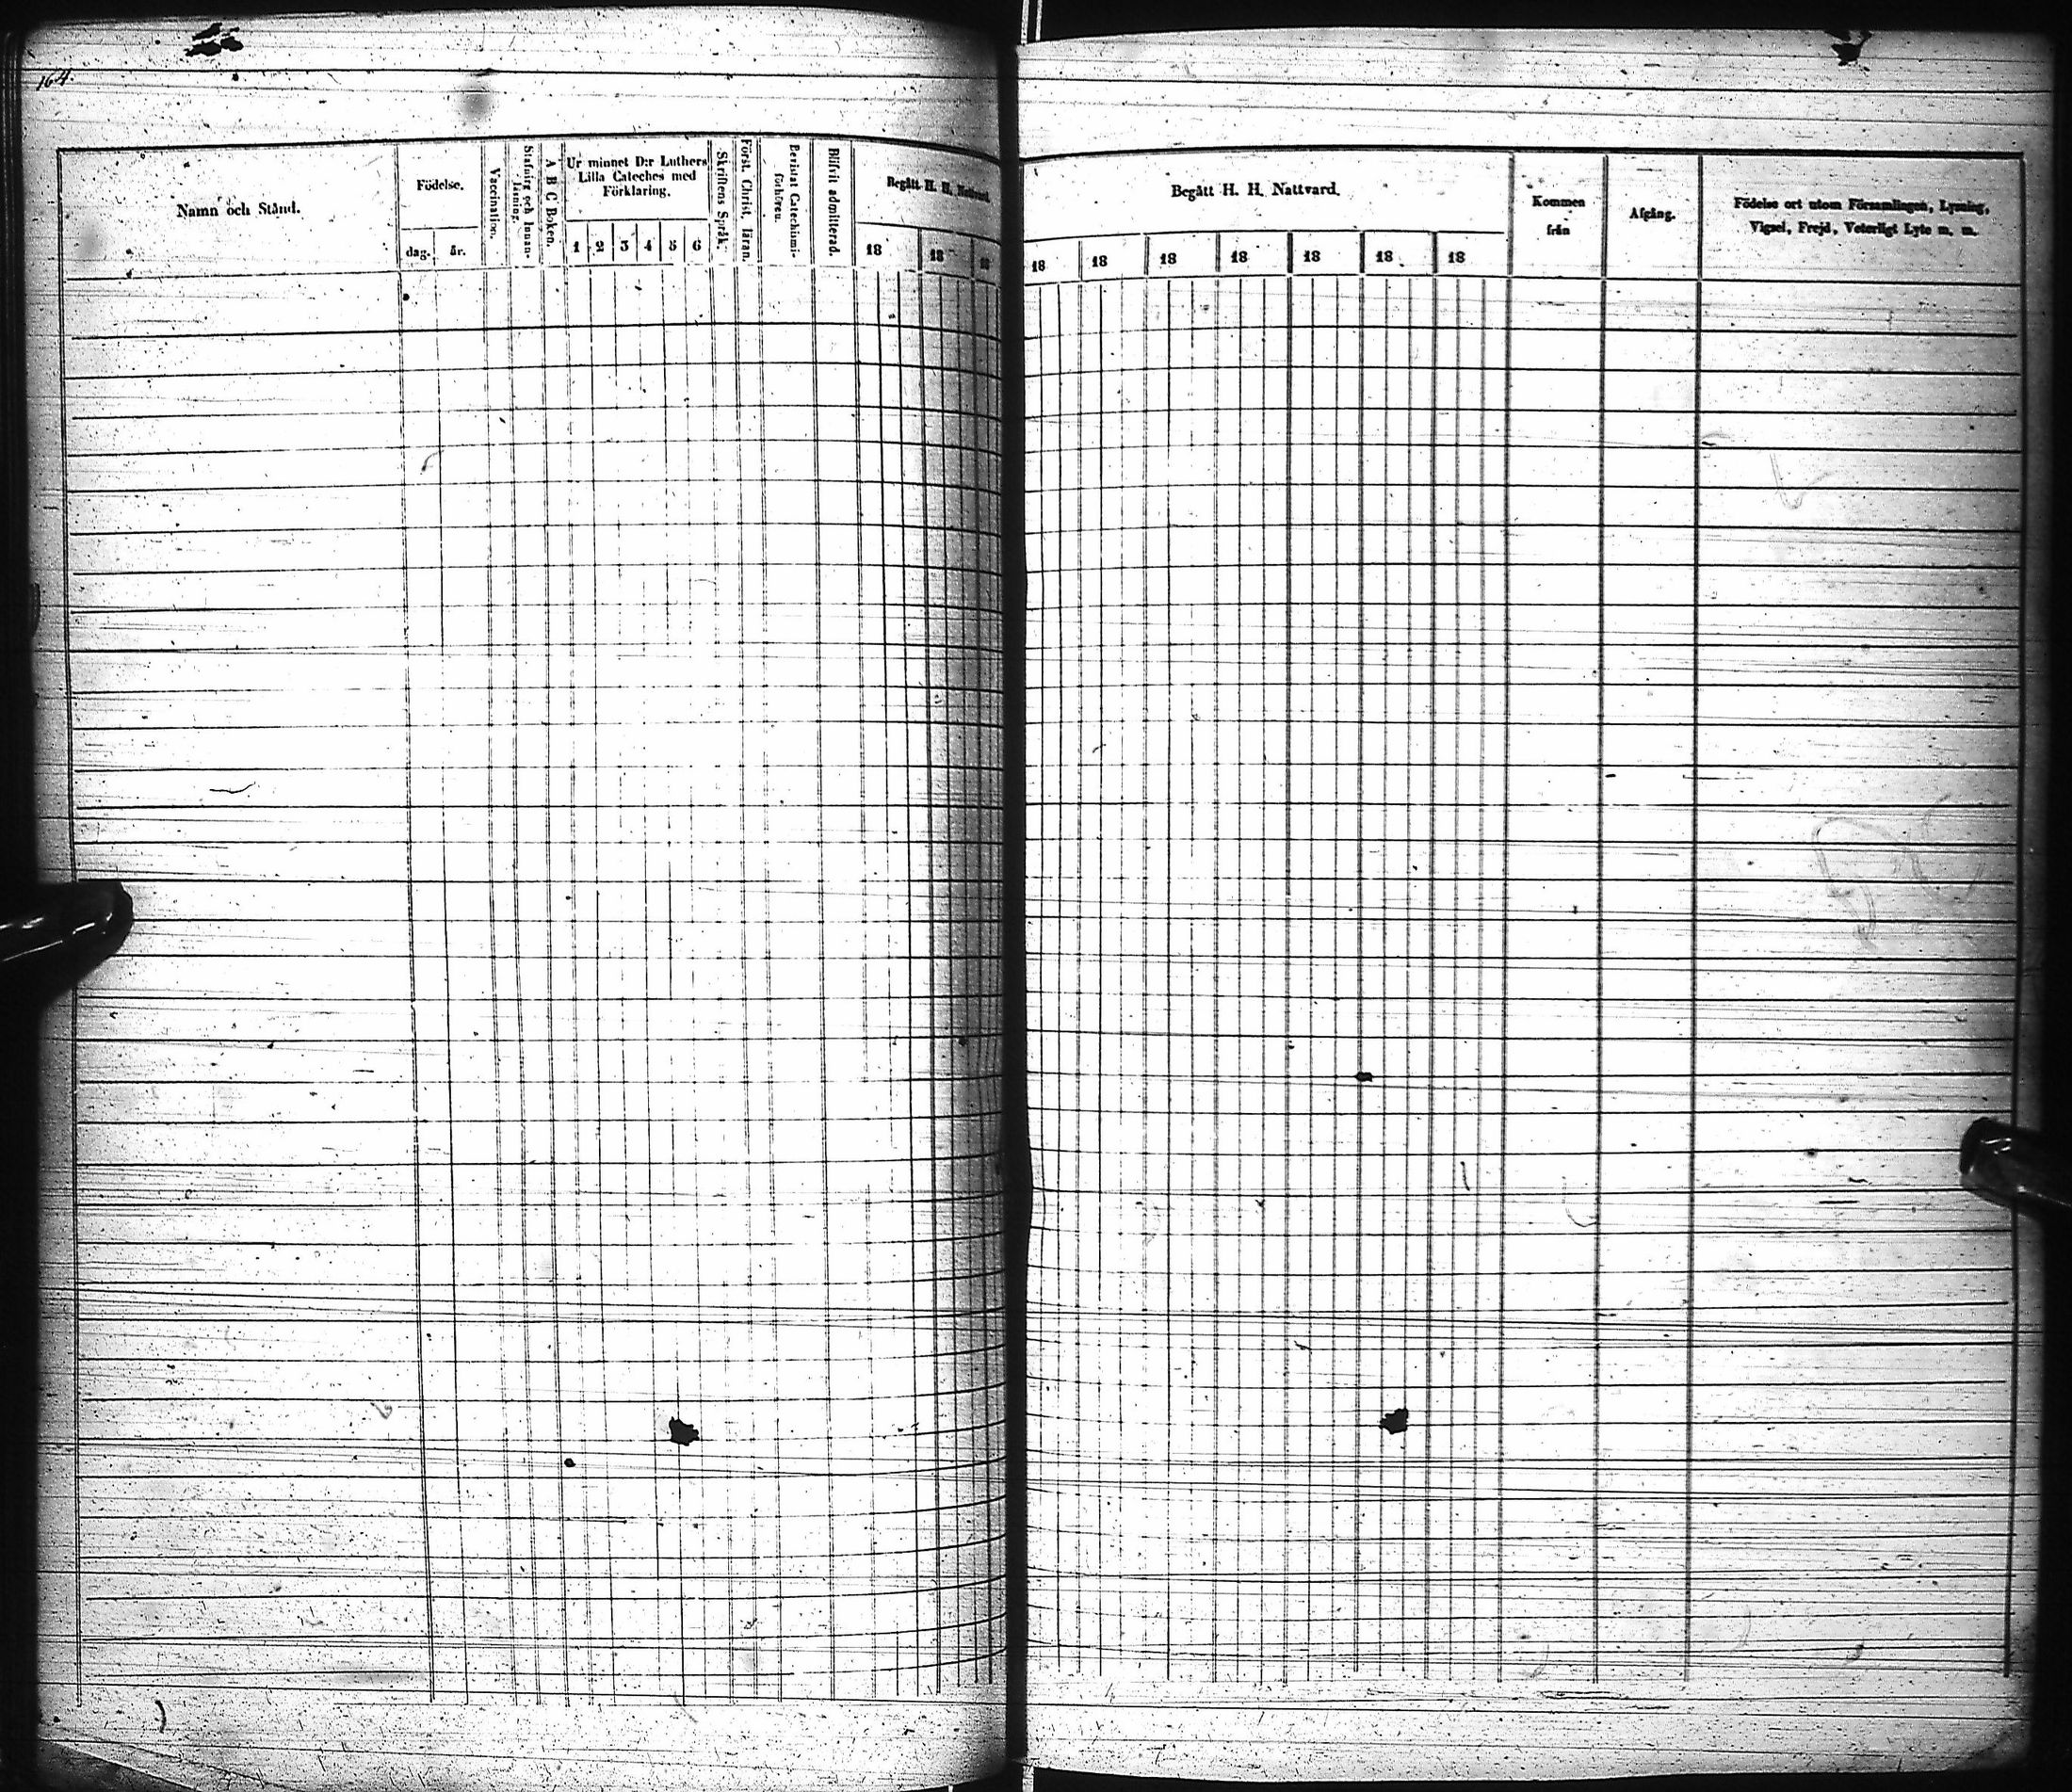 164.
Namn och Stånd.
Födelse.
dag. år.
Vaccination.
Stafning och Innan-
läsning.
A B C Boken.
Ur minnet D:r Luthers
Lilla Cateches med
Förklaring.
1 2 3 4 5 6
Skriftens Språk.
Först. Christ. läran.
Bevistat Catechismi-
förhören.
Blifvit admitterad.
Begått H. H. Nattvard.
18 18 18
Begått H. H. Nattvard.
18 18 18 18 18 18 18
Kommen
från
Afgång.
Födelse ort utom Församlingen, Lysning,
Vigsel, Frejd, Veterligt Lyte m. m.